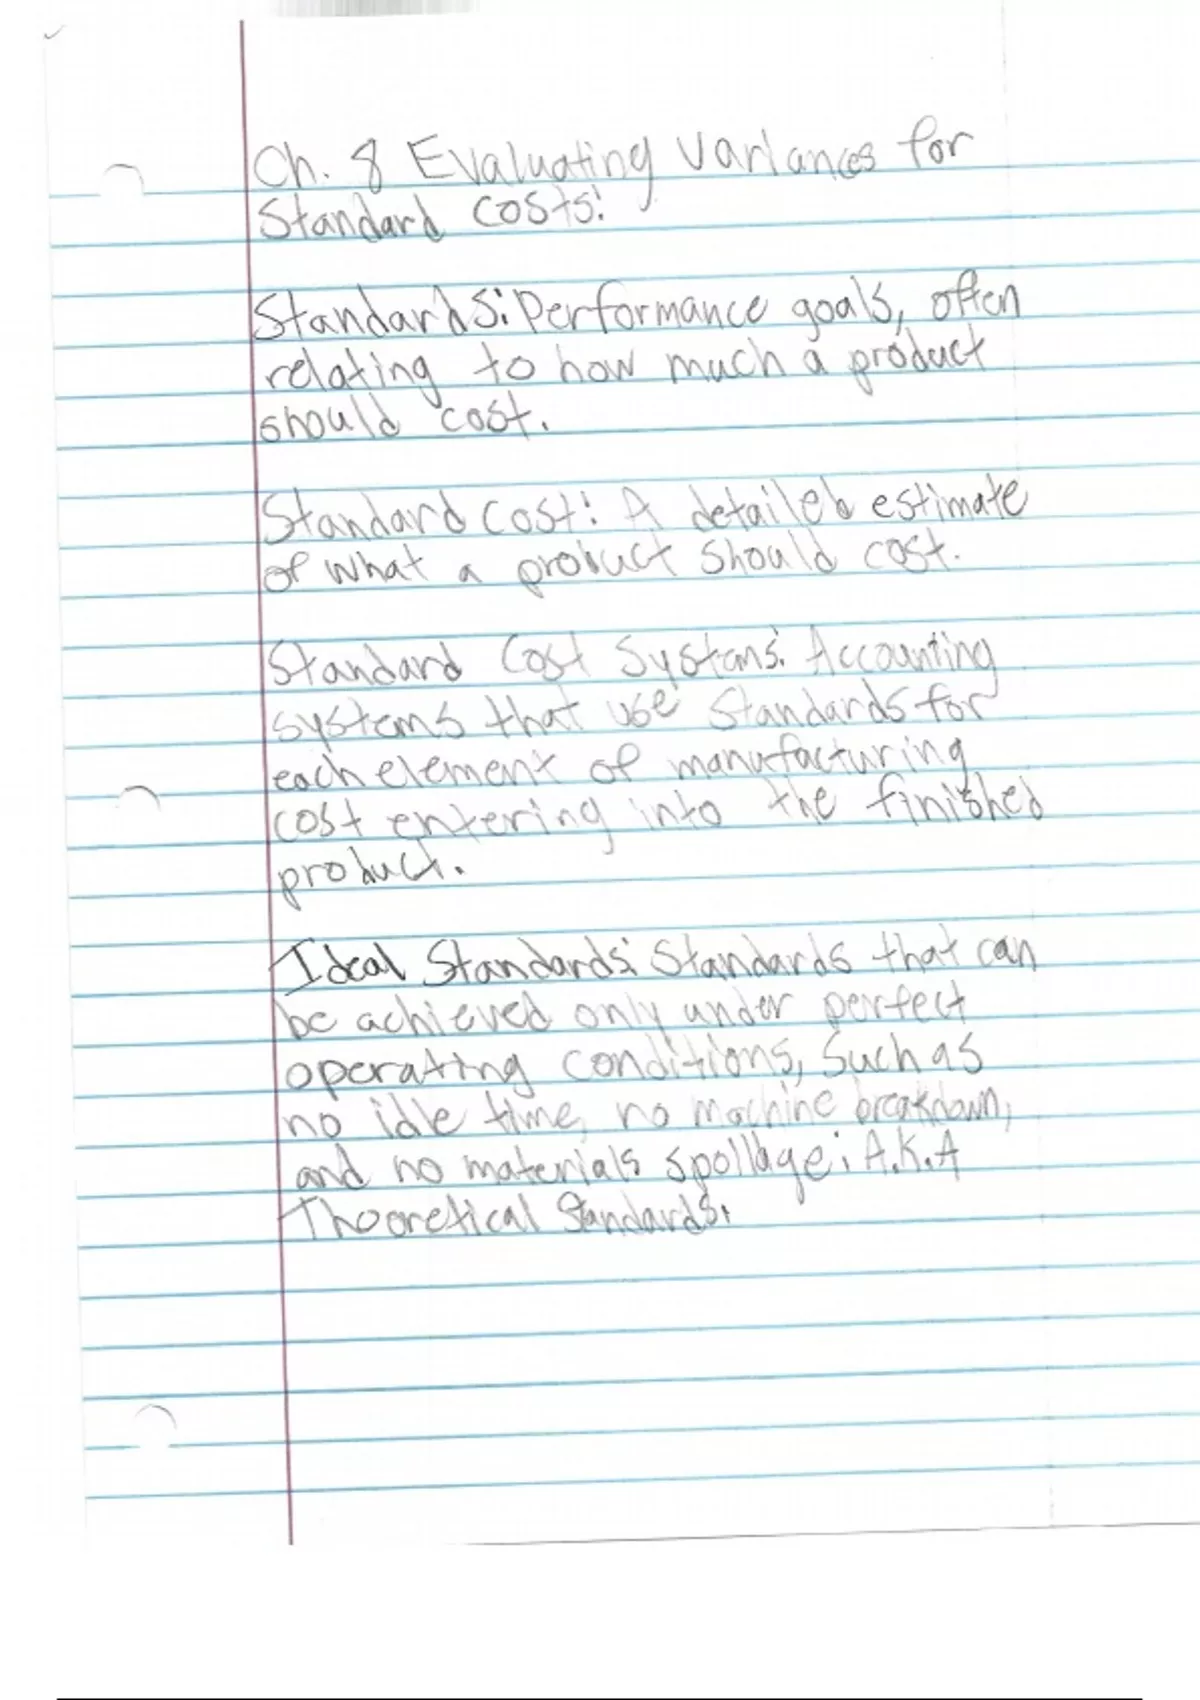 Ch. 8 Evaluating Variances for
Standard Costs:
Standards: Performance goals, often
relating to how much a product
should cost.
Standard Cost: A detailed estimate
of what a product should cost.
Standard Cost Systems: Accounting
systems that use standards for
each element of manufacturing
cost entering into the finished
product.
Ideal Standards: Standards that can
be achieved only under perfect
operating conditions, such as
no idle time, no machine breakdown,
and no materials spollage; A.K.A
Thooretical Standards.